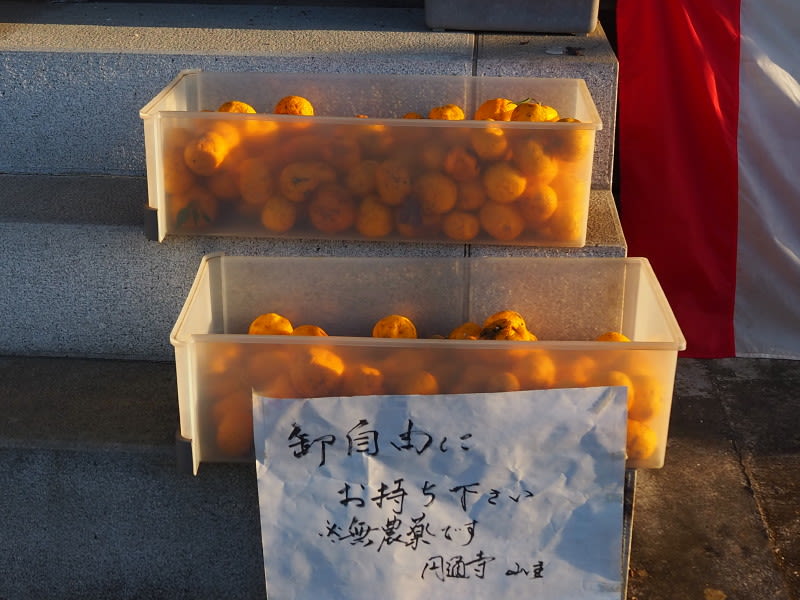 御自由に
お持ち下さい
※無農薬です
円通寺 山主